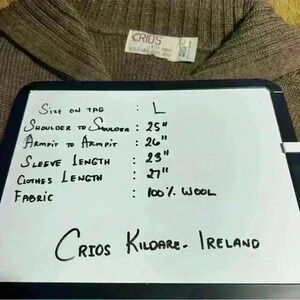 CRIOS
SIZE ON TAG : L
SHOULDER TO SHOULDER : 25"
ARMPIT TO ARMPIT : 26"
SLEEVE LENGTH : 23"
CLOTHES LENGTH : 27"
FABRIC : 100% WOOL
CRIOS KILDARE - IRELAND